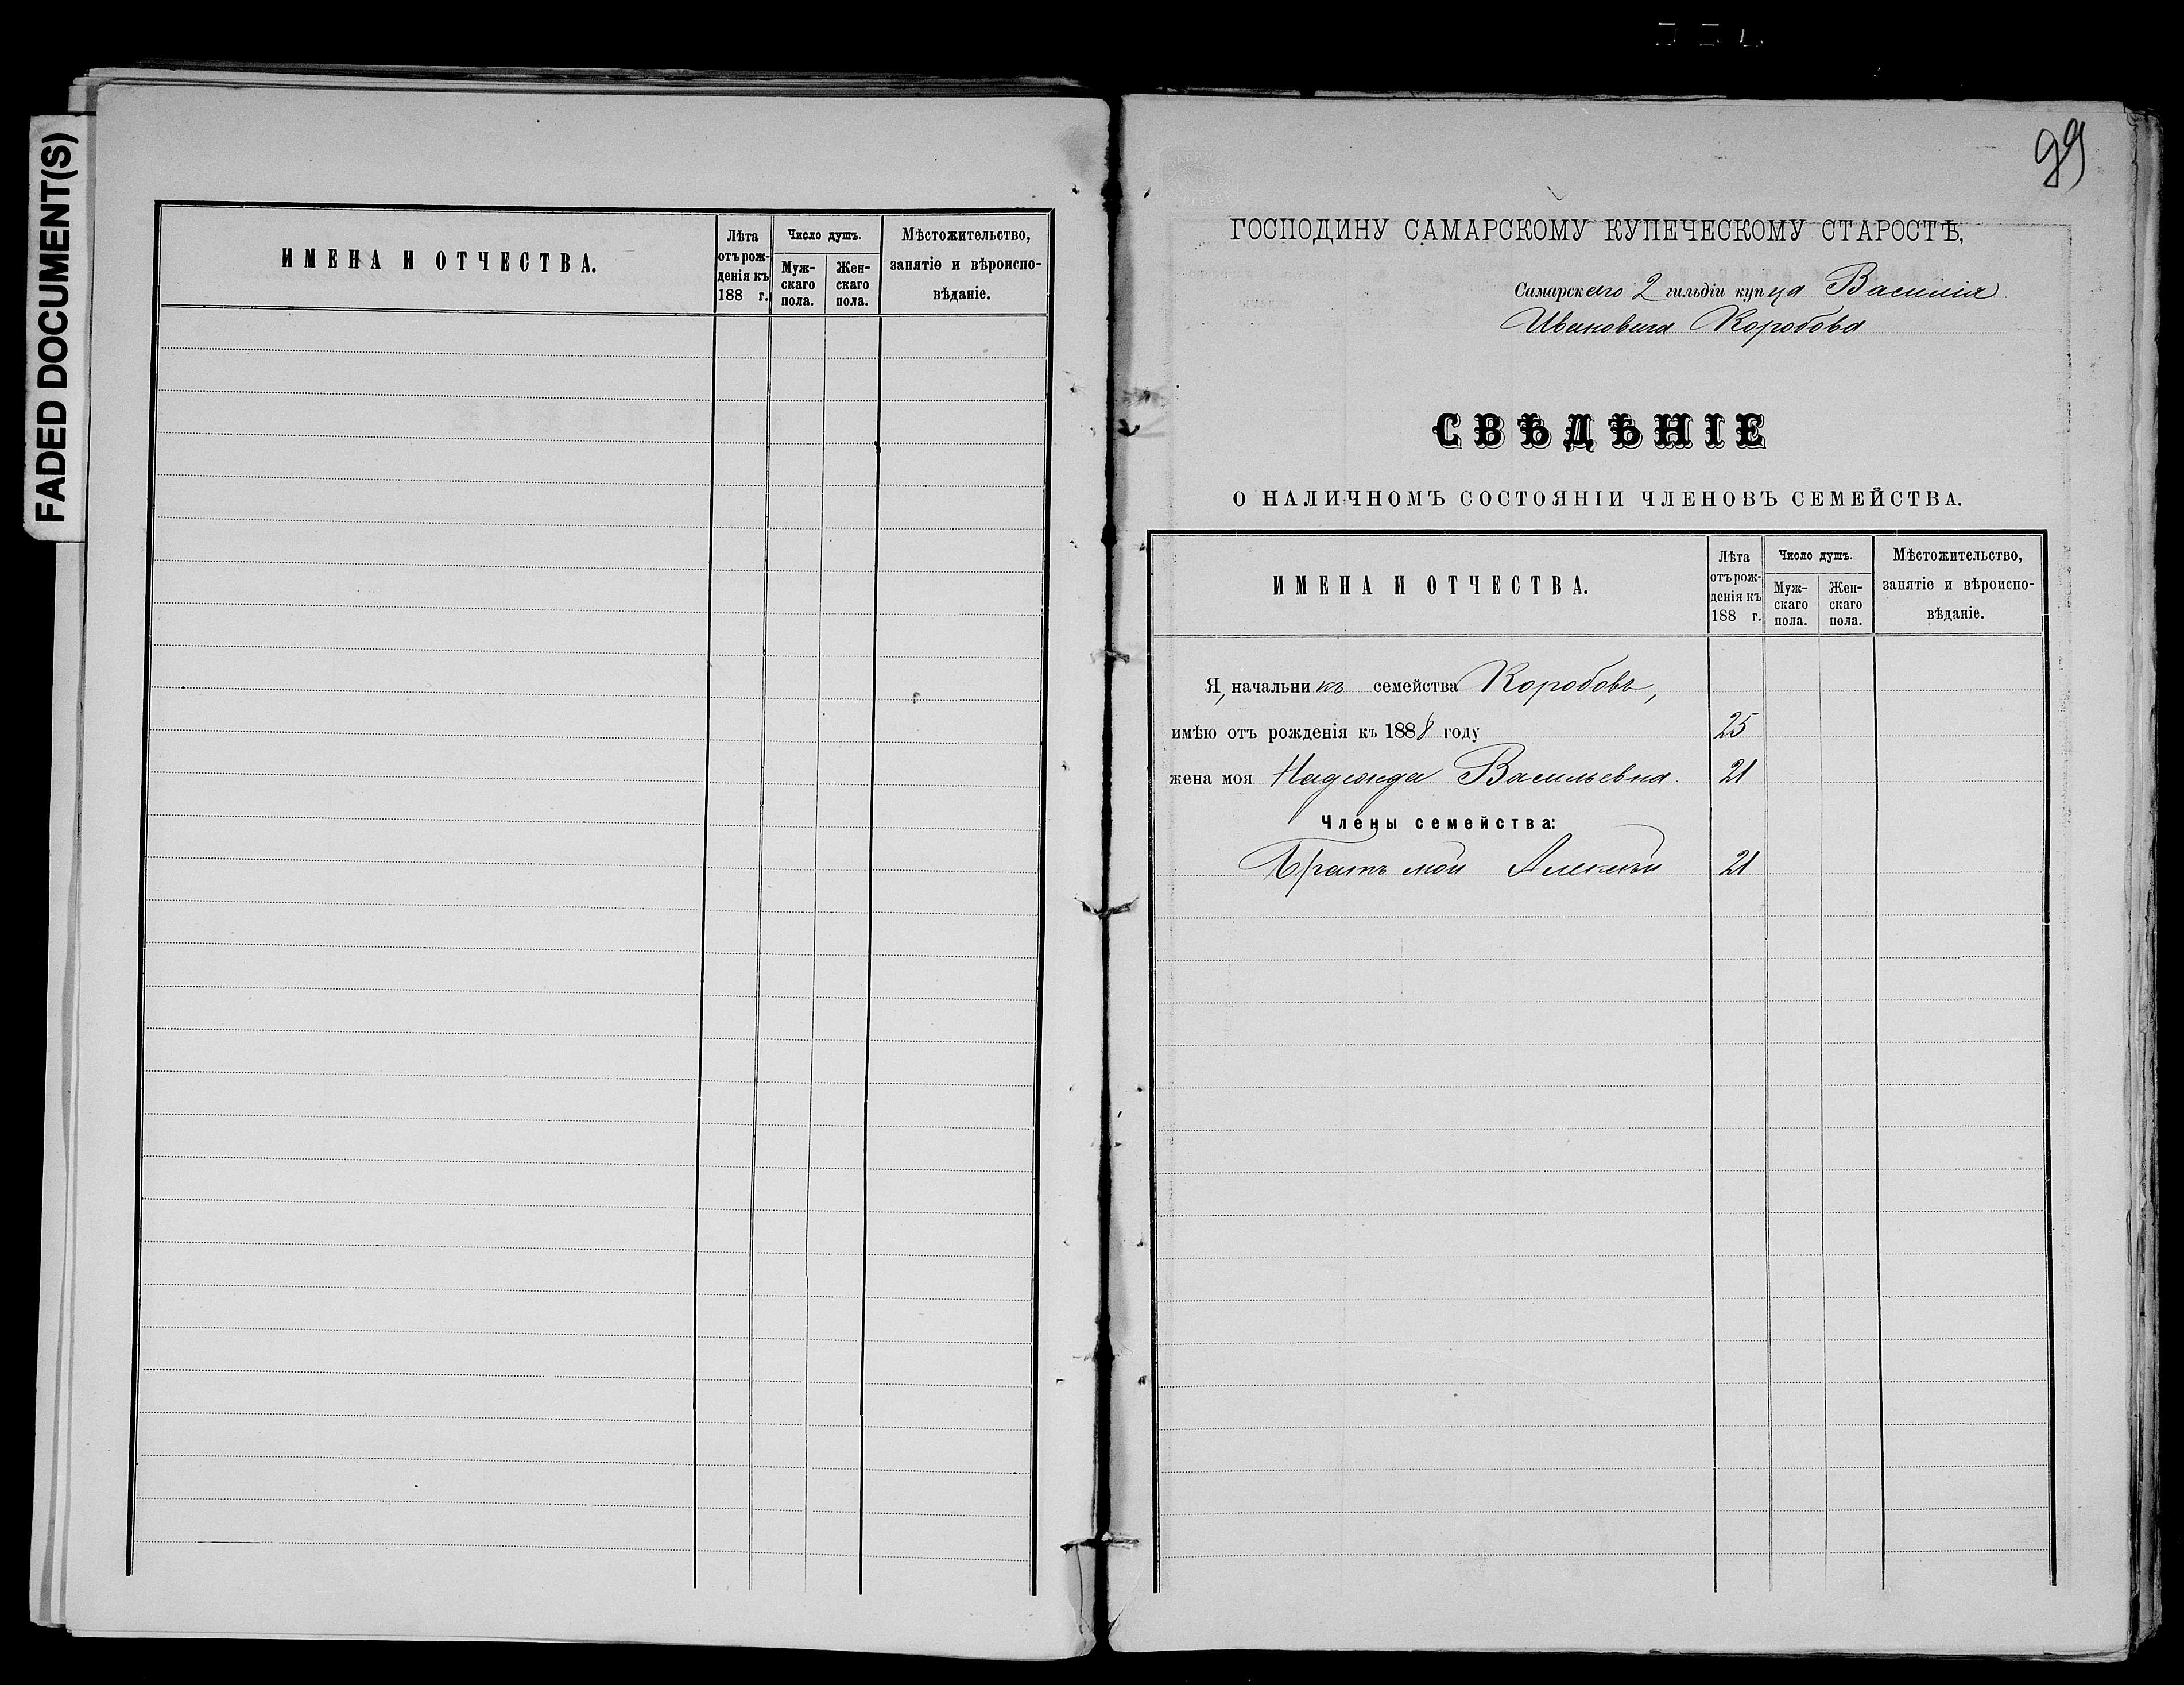 FADED DOCUMENT(S)
ИМЕНА И ОТЧЕСТВА.
Лѣта
отъ рож-
денія къ
188 г.
Число душъ.
Муж-
скаго
пола.
Жен-
скаго
пола.
Мѣстожительство,
занятіе и вѣроиспо-
вѣданіе.
99
ГОСПОДИНУ САМАРСКОМУ КУПЕЧЕСКОМУ СТАРОСТѢ,
Самарскаго 2 гильдіи купца Василія
Ивановича Коробова
СВѢДѢНІЕ
О НАЛИЧНОМЪ СОСТОЯНІИ ЧЛЕНОВЪ СЕМЕЙСТВА.
ИМЕНА И ОТЧЕСТВА.
Лѣта
отъ рож-
денія къ
188 г.
Число душъ.
Муж-
скаго
пола.
Жен-
скаго
пола.
Мѣстожительство,
занятіе и вѣроиспо-
вѣданіе.
Я, начальникъ семейства Коробовъ,
имѣю отъ рожденія къ 1888 году 25
жена моя Надежда Васильевна 21
Члены семейства:
Братъ мой Алексѣй 21